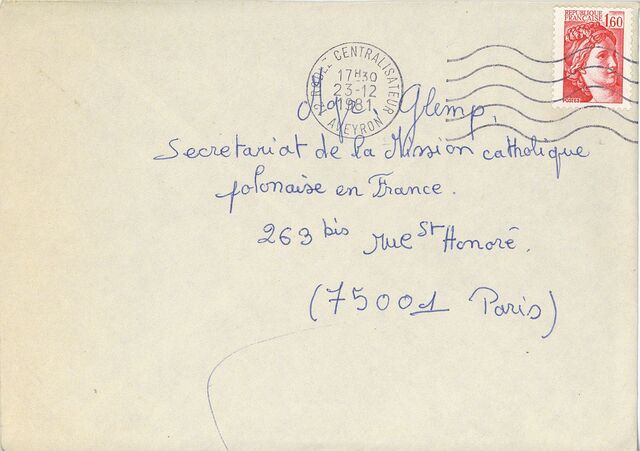 REPUBLIQUE
FRANCAISE 1,60
12 RODEZ CENTRALISATEUR
17H30
23-12
1981
AVEYRON
Glemp,
Secretariat de la Mission catholique
polonaise en France.
263 bis rue St Honoré.
(75001 Paris)